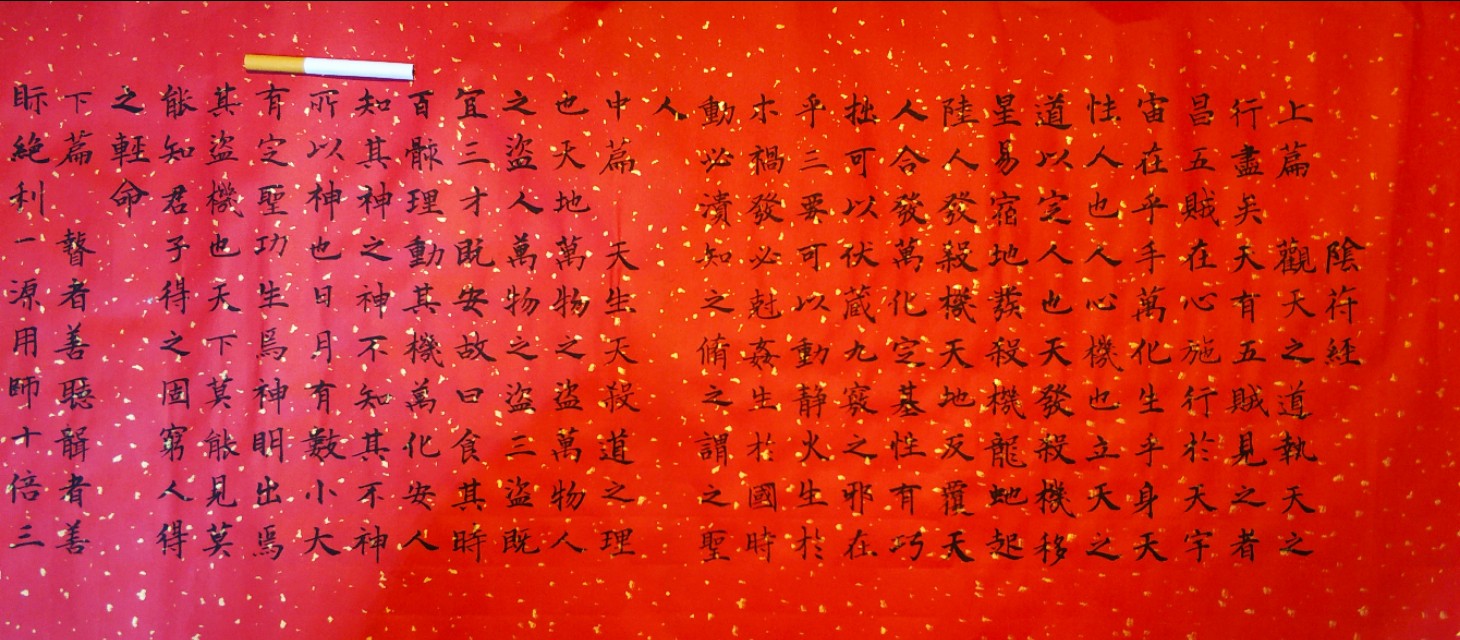 陰符經
上篇 觀天之道執天之
行盡矣天有五賊見之者
昌五賊在心施行於天宇
宙在乎手萬化生手身天
性人也人心機也立天之
道以定人也天發殺機移
星易宿地發殺機龍虵起
陸人發殺機天地反覆天
人合發萬化定基性有巧
拙可以伏蔵九竅之邪在
乎三要可以動静火生於
木禍發必尅姦生於國時
動必潰知之脩之謂之聖
人
中篇 天生天殺道之理
也天地萬物之盜萬物人
之盜人萬物之盜三盜既
宜三才既安故曰食其時
百骸理動其機萬化安人
知其神神之神不知其不神
所以神也日月有數小大
有定聖功生焉神明出焉
其盜機也天下莫能見莫
能知君子得之固窮人得
之輕命
下篇 瞽者善聽聾者善
眎絕利一源用師十倍三